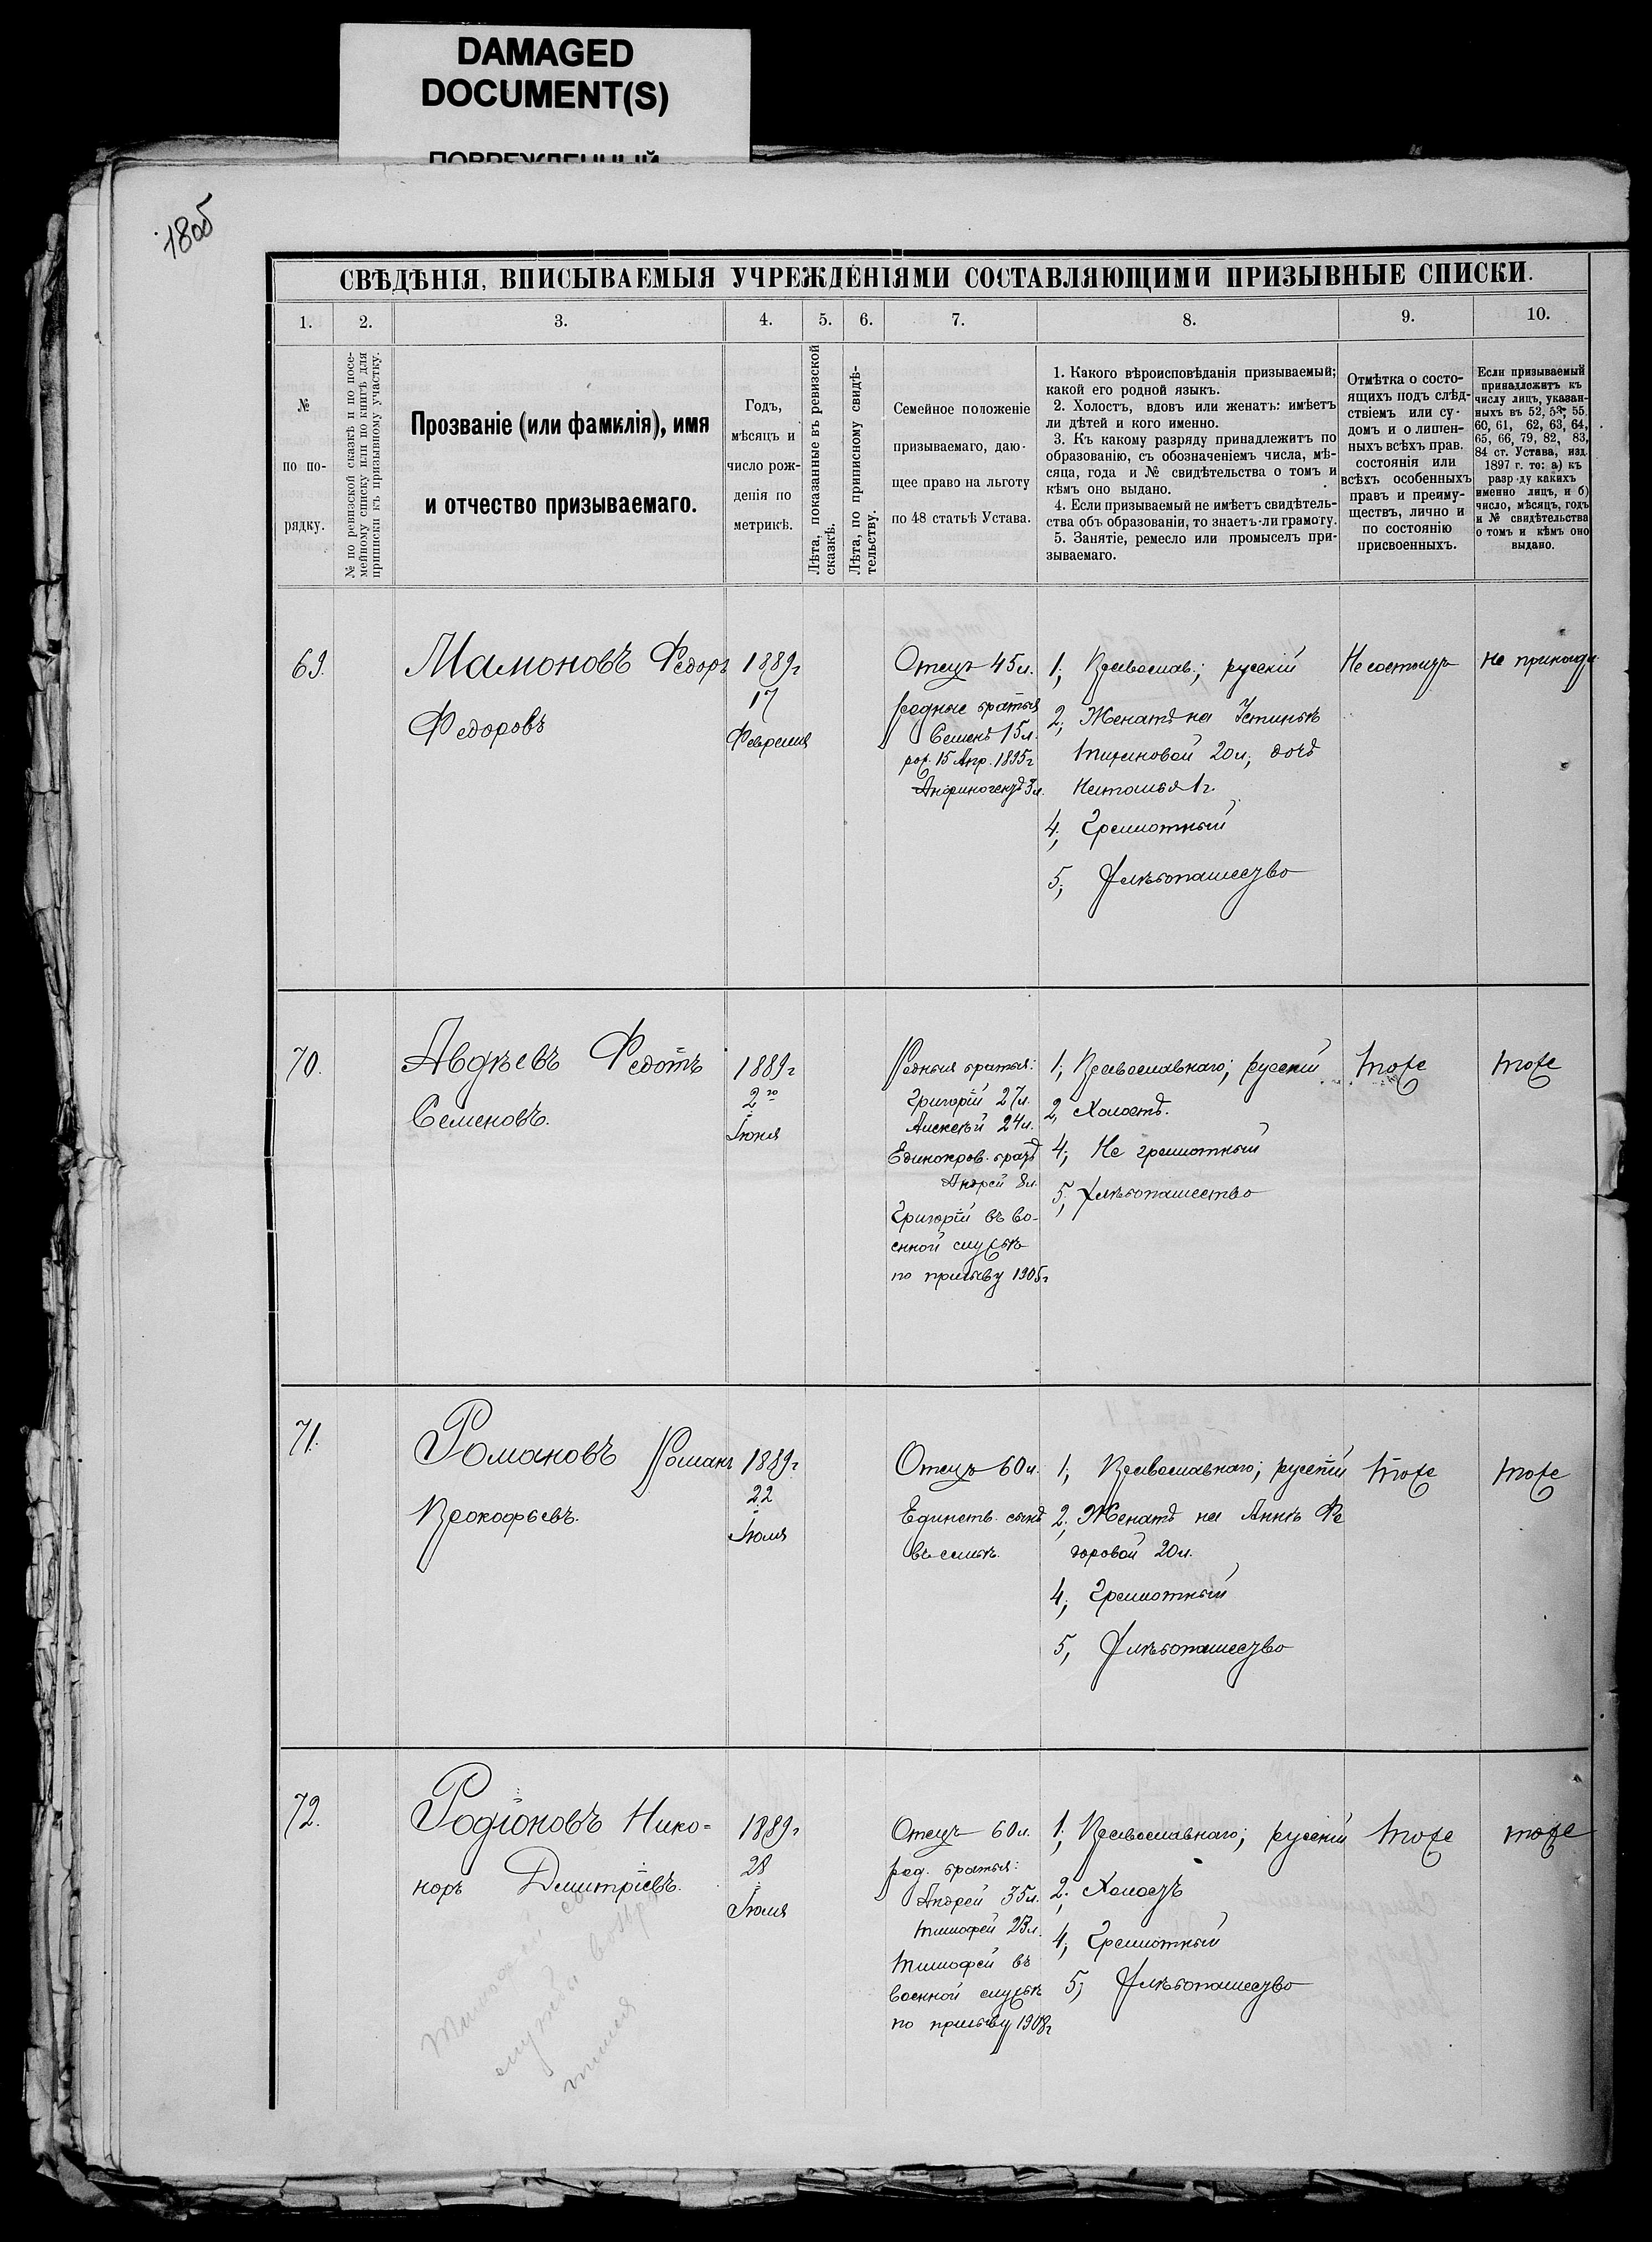 DAMAGED
DOCUMENT(S)
ПОВРЕЖДЕННЫЙ
180об
СВѢДѢНІЯ, ВПИСЫВАЕМЫЯ УЧРЕЖДЕНІЯМИ СОСТАВЛЯЮЩИМИ ПРИЗЫВНЫЕ СПИСКИ.
1. 2. 3. 4. 5. 6. 7. 8. 9. 10.
№
по по-
рядку.
№ по ревизской сказкѣ и по посе-
мейному списку или по книгѣ для
приписки къ призывному участку.
Прозваніе (или фамилія), имя
и отчество призываемаго.
Годъ,
мѣсяцъ и
число рож-
денія по
метрикѣ.
Лѣта, показанные въ ревизской
сказкѣ.
Лѣта, по приписному свидѣ-
тельству.
Семейное положеніе
призываемаго, даю-
щее право на льготу
по 48 статьѣ Устава.
1. Какого вѣроисповѣданія призываемый;
какой его родной языкъ.
2. Холостъ, вдовъ или женатъ: имѣетъ
ли дѣтей и кого именно.
3. Къ какому разряду принадлежитъ по
образованію, съ обозначеніемъ числа, мѣ-
сяца, года и № свидѣтельства о томъ и
кѣмъ оно выдано.
4. Если призываемый не имѣетъ свидѣтель-
ства объ образованіи, то знаетъ-ли грамоту.
5. Занятіе, ремесло или промыселъ при-
зываемаго.
Отмѣтка о состо-
ящихъ подъ слѣд-
ствіемъ или су-
домъ и о лишен-
ныхъ всѣхъ прав.
состоянія или
всѣхъ особенныхъ
правъ и преиму-
ществъ, лично и
по состоянію
присвоенныхъ.
Если призываемый
принадлежитъ къ
числу лицъ, указан-
ныхъ въ 52, 53, 55,
60, 61, 62, 63, 64,
65, 66, 79, 82, 83,
84 ст. Устава, изд.
1897 г. то: а) къ
разр ду какихъ
именно лицъ, и б)
число, мѣсяцъ, годъ
и № свидѣтельства
о томъ и кѣмъ оно
выдано.
69.
Мамоновъ Федоръ
Федоровъ
1889г
17
Февраля
Отецъ 45л.
родные братья
Семенъ 15л.
рож. 15 Апр. 1895г
Анфиногенъ 3л.
1; Православ.; русскій
2; Женатъ на Устиньѣ
20л; дочь
Наталья 1г.
4; Грамотный
5; Хлѣбопашество
Не состоитъ
Не принадл
70.
Авдѣевъ Федотъ
Семеновъ.
1889г
2го
Іюня
Родныя братья:
Григорій 27л.
Алексѣй 24л.
Единокров. братъ
Андрей 8л.
Григорій въ во-
енной службѣ
по призыву 1905г
1; Православнаго; русскій
2; Холостъ.
4; Не грамотный
5; Хлѣбопашество
тоже
тоже
71.
Романовъ Романъ
Прокофьевъ.
1889г
22
Іюля
Отецъ 60л.
Единств. сынъ
въ семьѣ.
1; Православнаго; русскій
2; Женатъ на Аннѣ Фе
доровой 20л.
4; Грамотный
5; Хлѣбопашество
тоже
тоже
72.
Родіоновъ Нико-
норъ Дмитріевъ.
1889г
28
Іюля
Отецъ 60л.
род. братья:
Андрей 35л.
Тимофей 23л.
Тимофей въ
военной службѣ
по призыву 1908г
1; Православнаго; русскій
2; Холостъ
4; Грамотный
5; Хлѣбопашество
тоже
тоже
Тимофей
службы